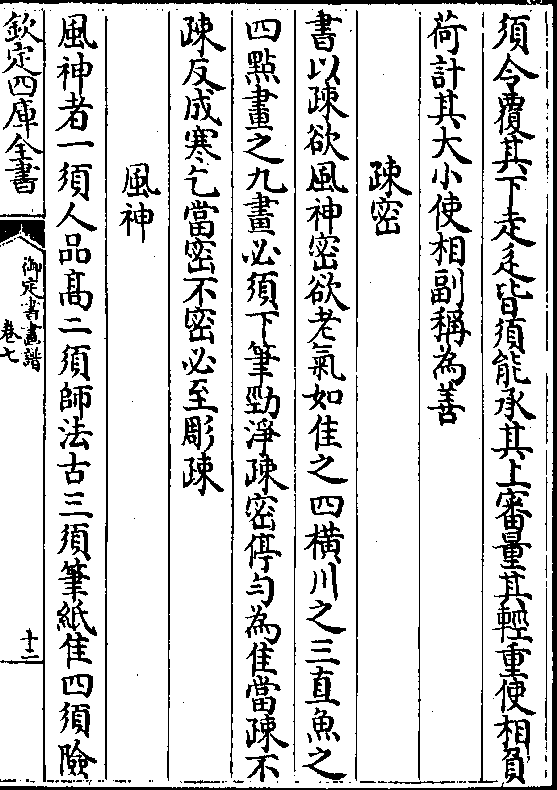 須令覆其下走辵皆須能承其上審量其輕重使相負
荷計其大小使相副稱為善
疎密
書以疎欲風神密欲老氣如佳之四橫川之三直魚之
四點畫之九畫必須下筆勁淨疎密停勻為佳當疎不
疎反成寒乞當密不密必至彫疎
風神
風神者一須人品髙二須師法古三須筆紙佳四須險
欽定四庫全書
御定書畫譜
卷七
十二